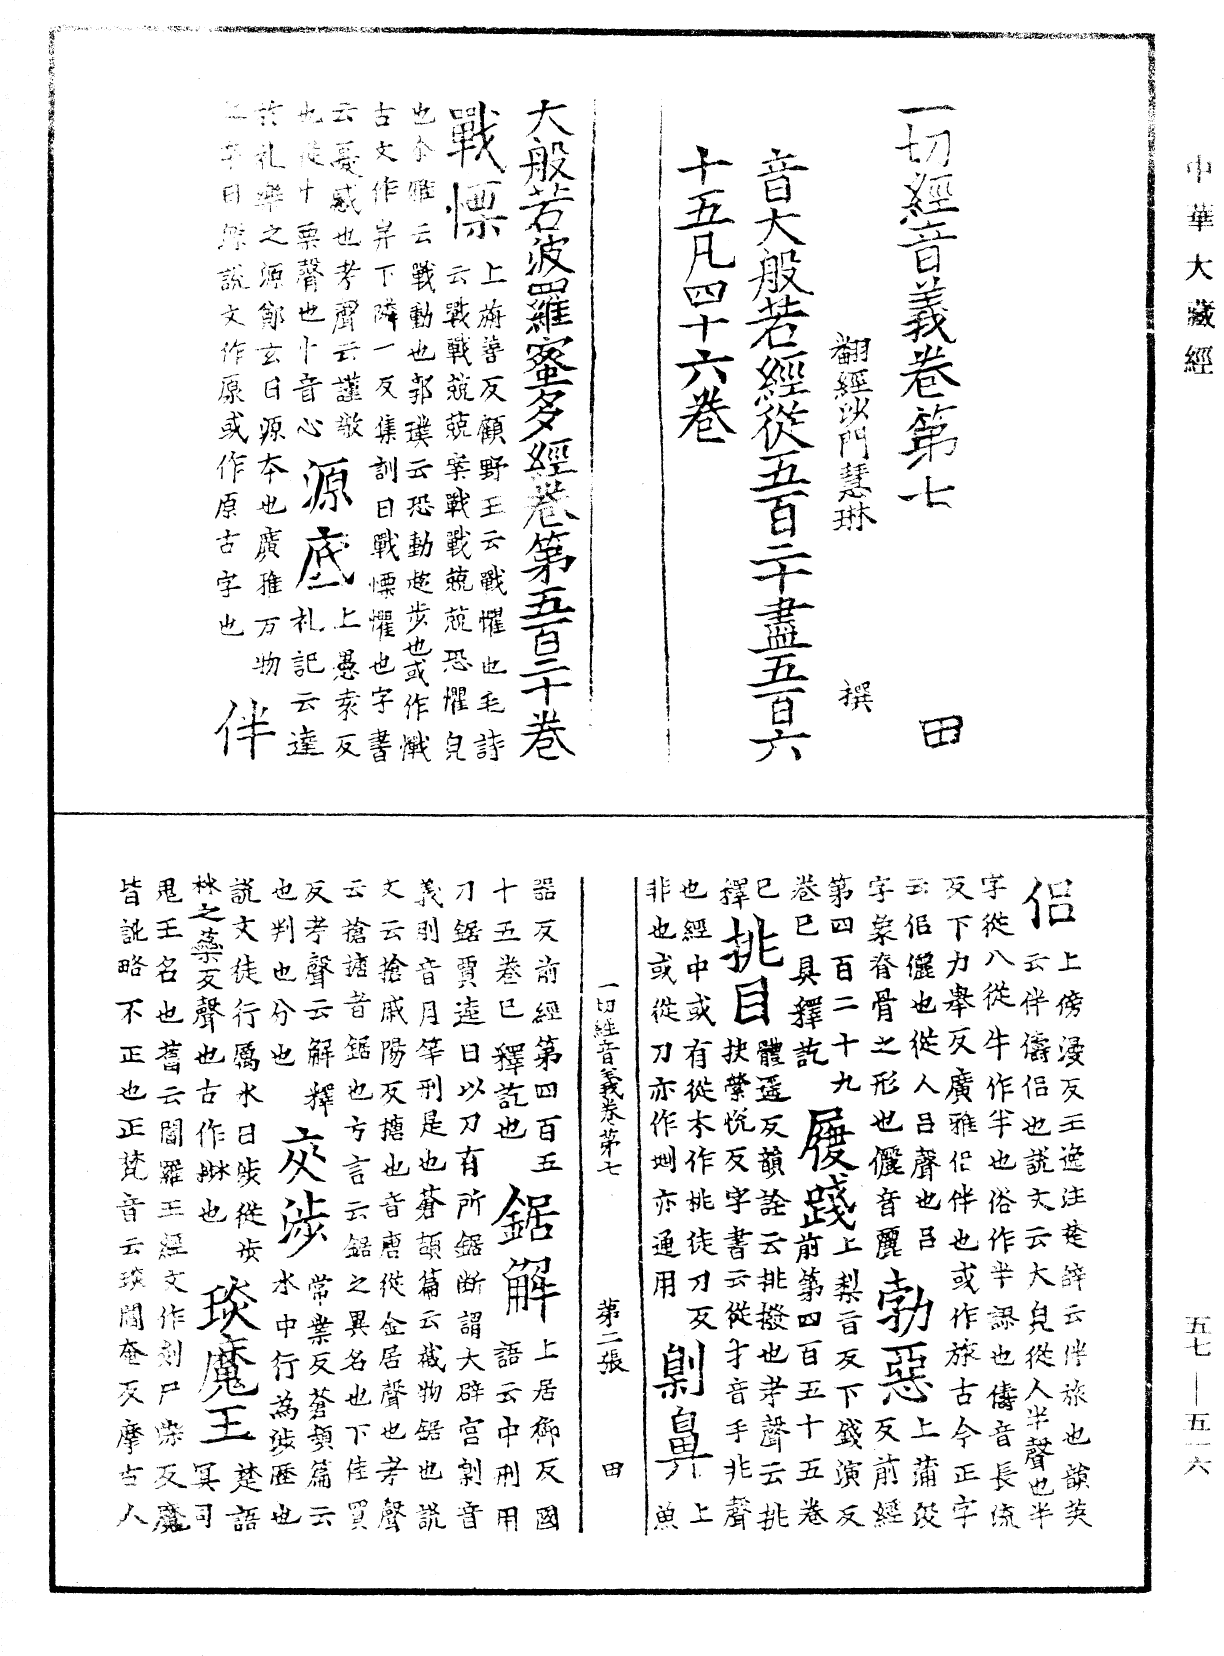 中華大藏經
一切經音義卷第七　田
翻經沙門慧琳　撰
音大般若經從五百二十盡五百六
十五凡四十六卷
大般若波羅蜜多經卷第五百二十卷
戰慄
上旃善反顧野王云戰懼也毛詩
云戰戰兢兢案戰戰兢兢恐懼皃
也尒雅云戰動也郭璞云恐動趍步也或作懺
古文作弄下隣一反集訓曰戰慄懼也字書
云憂慼也考聲云謹敬
也從忄栗聲也忄音心
源底
上愚袁反
礼記云達
於礼樂之源鄭玄曰源本也廣雅万物
字曰源說文作原或作原古字也
伴
侣
上傍漫反王逸注楚辞云伴旅也韻英
云伴儔侣也說文云大皃從人半聲也半
字從八從牛作半也俗作半誤也儔音長流
反下力舉反廣雅侣伴也或作旅古今正字
云侣儷也從人吕聲也吕
字象脊骨之形也儷音麗
勃惡
上蒲没
反前經
第四百二十九
卷已具釋訖
履踐
上梨旨反下錢演反
前第四百五十五卷
已釋
挑目
體遥反韻詮云挑撥也考聲云挑
抉縈悦反字書云從扌音手兆聲
也經中或有從木作桃徒刀反
非也或從刀亦作𠛪亦通用
劓鼻
上
魚
器反前經第四百五
十五卷已釋訖也
鋸解
上居御反國
語云中刑用
刀鋸賈逵曰以刀有所鋸断謂大辟宫劓音
義刖音月等刑是也蒼頡篇云截物鋸也說
文云搶戚陽反搪也音唐從金居聲也考聲
云搶搪者鋸也方言云鋸之異名也下佳買
反考聲云解釋
也判也分也
交涉
常葉反蒼頡篇云
水中行為涉歷也
說文徒行厲水曰涉從步
𣥿之蘂反聲也古作𣻣也
琰魔王
楚語
冥司
鬼王名也舊云閻羅王經文作剡尸染反魔
皆訛略不正也正梵音云琰閻奄反摩古人
一切經音義卷第七　第二張　田
五七—五一六